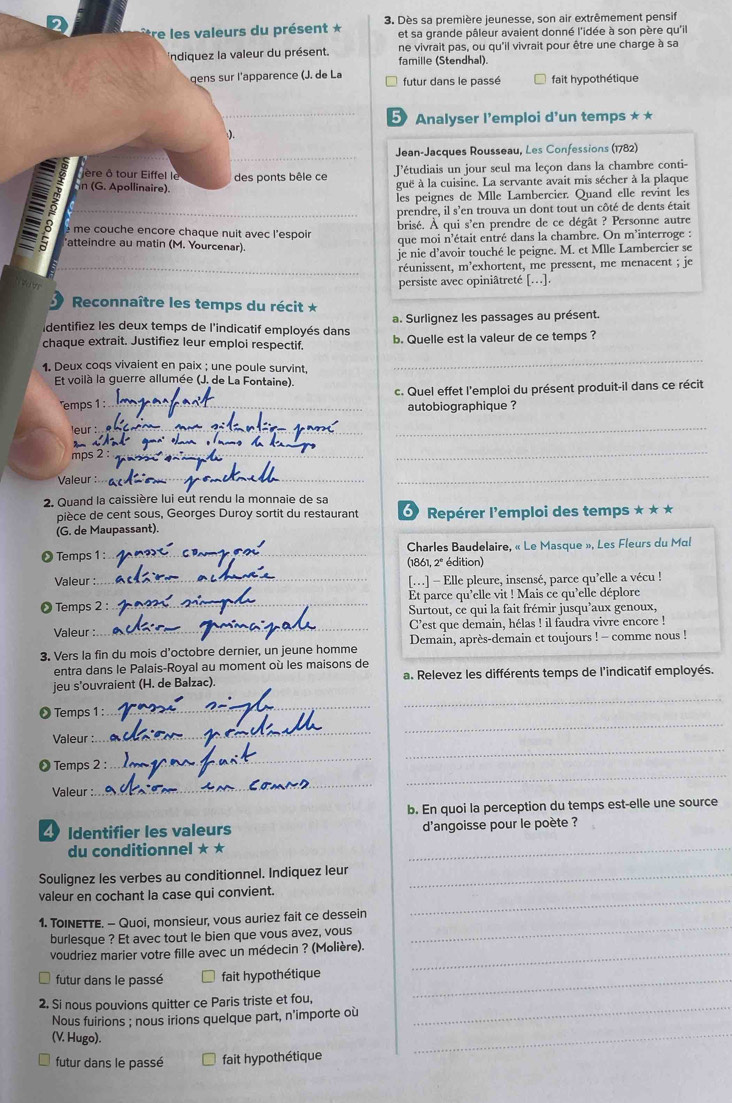 2
ître les valeurs du présent ★
indiquez la valeur du présent.
gens sur l'apparence (J. de La
).
ère ô tour Eiffel le des ponts bêle ce
n (G. Apollinaire).
me couche encore chaque nuit avec l'espoir
'atteindre au matin (M. Yourcenar).
UBISHI PENCIL CO., LTD.
Reconnaître les temps du récit ★
Identifiez les deux temps de l'indicatif employés dans
chaque extrait. Justifiez leur emploi respectif.
1. Deux coqs vivaient en paix ; une poule survint,
Et voilà la guerre allumée (J. de La Fontaine).
Temps 1 : Imparfait
leur : décrire une situation passé
qui dans le temps
mps 2 : passé simple
Valeur : action ponctuelle
2. Quand la caissière lui eut rendu la monnaie de sa
pièce de cent sous, Georges Duroy sortit du restaurant
(G. de Maupassant).
Temps 1 : passé composé
Valeur : action achevée
Temps 2 : passé simple
Valeur : action principale
3. Vers la fin du mois d'octobre dernier, un jeune homme
entra dans le Palais-Royal au moment où les maisons de
jeu s'ouvraient (H. de Balzac).
Temps 1 : passé simple
Valeur : action ponctuelle
Temps 2 : Imparfait
Valeur : action en cours
4 Identifier les valeurs
du conditionnel ★ ★
Soulignez les verbes au conditionnel. Indiquez leur
valeur en cochant la case qui convient.
1. TOINETTE. – Quoi, monsieur, vous auriez fait ce dessein
burlesque ? Et avec tout le bien que vous avez, vous
voudriez marier votre fille avec un médecin ? (Molière).
futur dans le passé fait hypothétique
2. Si nous pouvions quitter ce Paris triste et fou,
Nous fuirions ; nous irions quelque part, n'importe où
(V. Hugo).
futur dans le passé fait hypothétique
3. Dès sa première jeunesse, son air extrêmement pensif
et sa grande pâleur avaient donné l'idée à son père qu'il
ne vivrait pas, ou qu'il vivrait pour être une charge à sa
famille (Stendhal).
futur dans le passé fait hypothétique
5 Analyser l'emploi d'un temps ★ ★
Jean-Jacques Rousseau, Les Confessions (1782)
J'étudiais un jour seul ma leçon dans la chambre conti-
guë à la cuisine. La servante avait mis sécher à la plaque
les peignes de Mlle Lambercier. Quand elle revint les
prendre, il s'en trouva un dont tout un côté de dents était
brisé. À qui s'en prendre de ce dégât ? Personne autre
que moi n'était entré dans la chambre. On m'interroge :
je nie d'avoir touché le peigne. M. et Mlle Lambercier se
réunissent, m'exhortent, me pressent, me menacent ; je
persiste avec opiniâtreté [...].
a. Surlignez les passages au présent.
b. Quelle est la valeur de ce temps ?
c. Quel effet l'emploi du présent produit-il dans ce récit
autobiographique ?
6 Repérer l'emploi des temps ★ ★ ★
Charles Baudelaire, « Le Masque », Les Fleurs du Mal
(1861, 2e édition)
[...] – Elle pleure, insensé, parce qu'elle a vécu !
Et parce qu'elle vit ! Mais ce qu'elle déplore
Surtout, ce qui la fait frémir jusqu'aux genoux,
C'est que demain, hélas ! il faudra vivre encore !
Demain, après-demain et toujours ! – comme nous !
a. Relevez les différents temps de l'indicatif employés.
b. En quoi la perception du temps est-elle une source
d'angoisse pour le poète ?